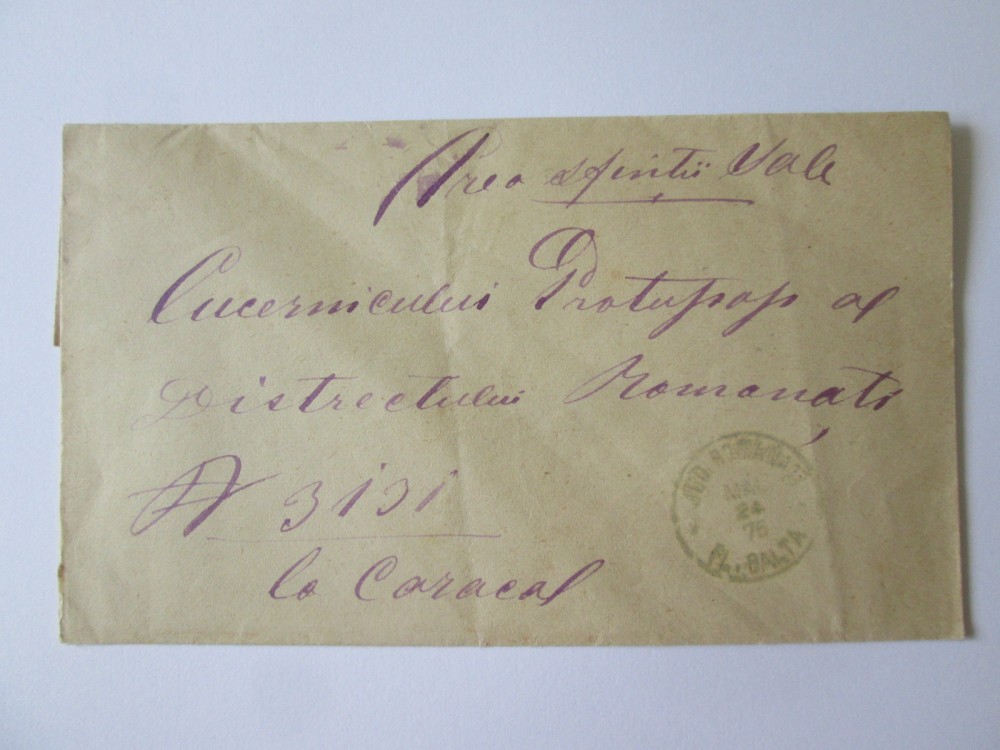 Prea sfintii Sale
Cucernicului Protupop al
Districtului Romanați
N 3131
la Caracal
JUD ROMANATI
MAI
24
76
BALTA